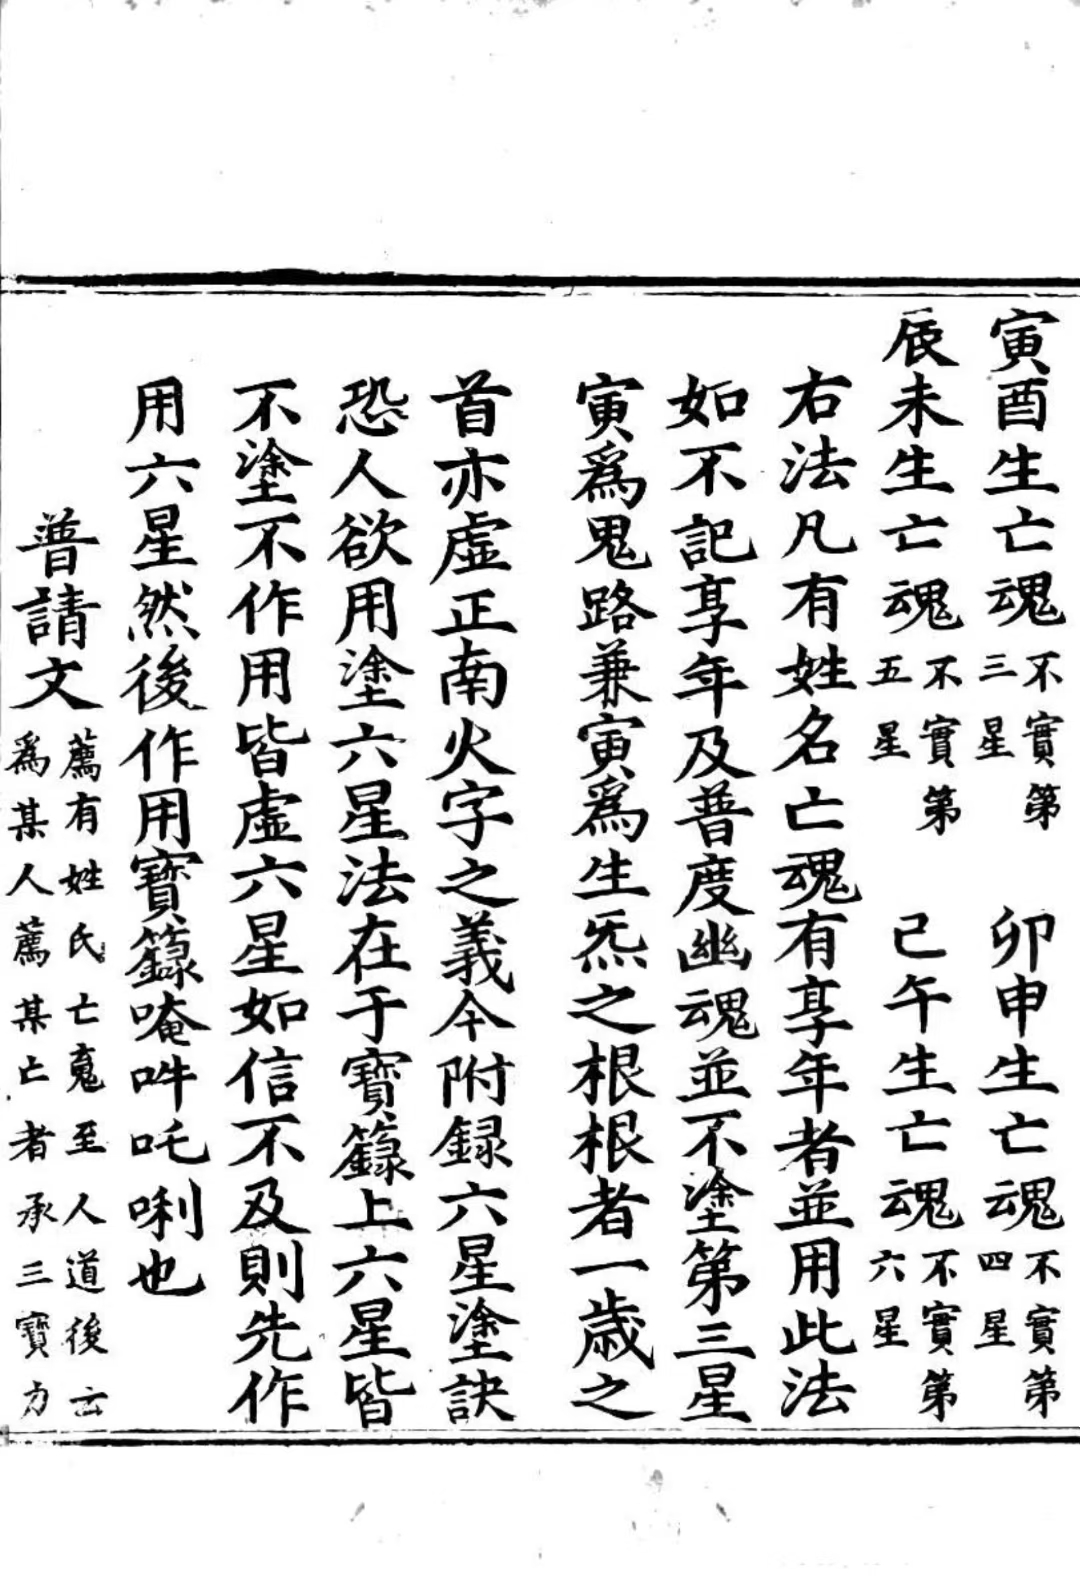 寅酉生亡魂不實第三星　卯申生亡魂不實第四星
辰未生亡魂不實第五星　己午生亡魂不實第六星
右法凡有姓名亡魂有享年者並用此法
如不記享年及普度幽魂並不塗第三星
寅爲鬼路兼寅爲生炁之根根者一歳之
首亦虛正南火字之義今附録六星塗訣
恐人欲用塗六星法在于寶籙上六星皆
不塗不作用皆虛六星如信不及則先作
用六星然後作用寶籙唵吽吒唎也
普請文薦有姓氏亡䰟至人道後云爲某人薦某亡者承三寶力